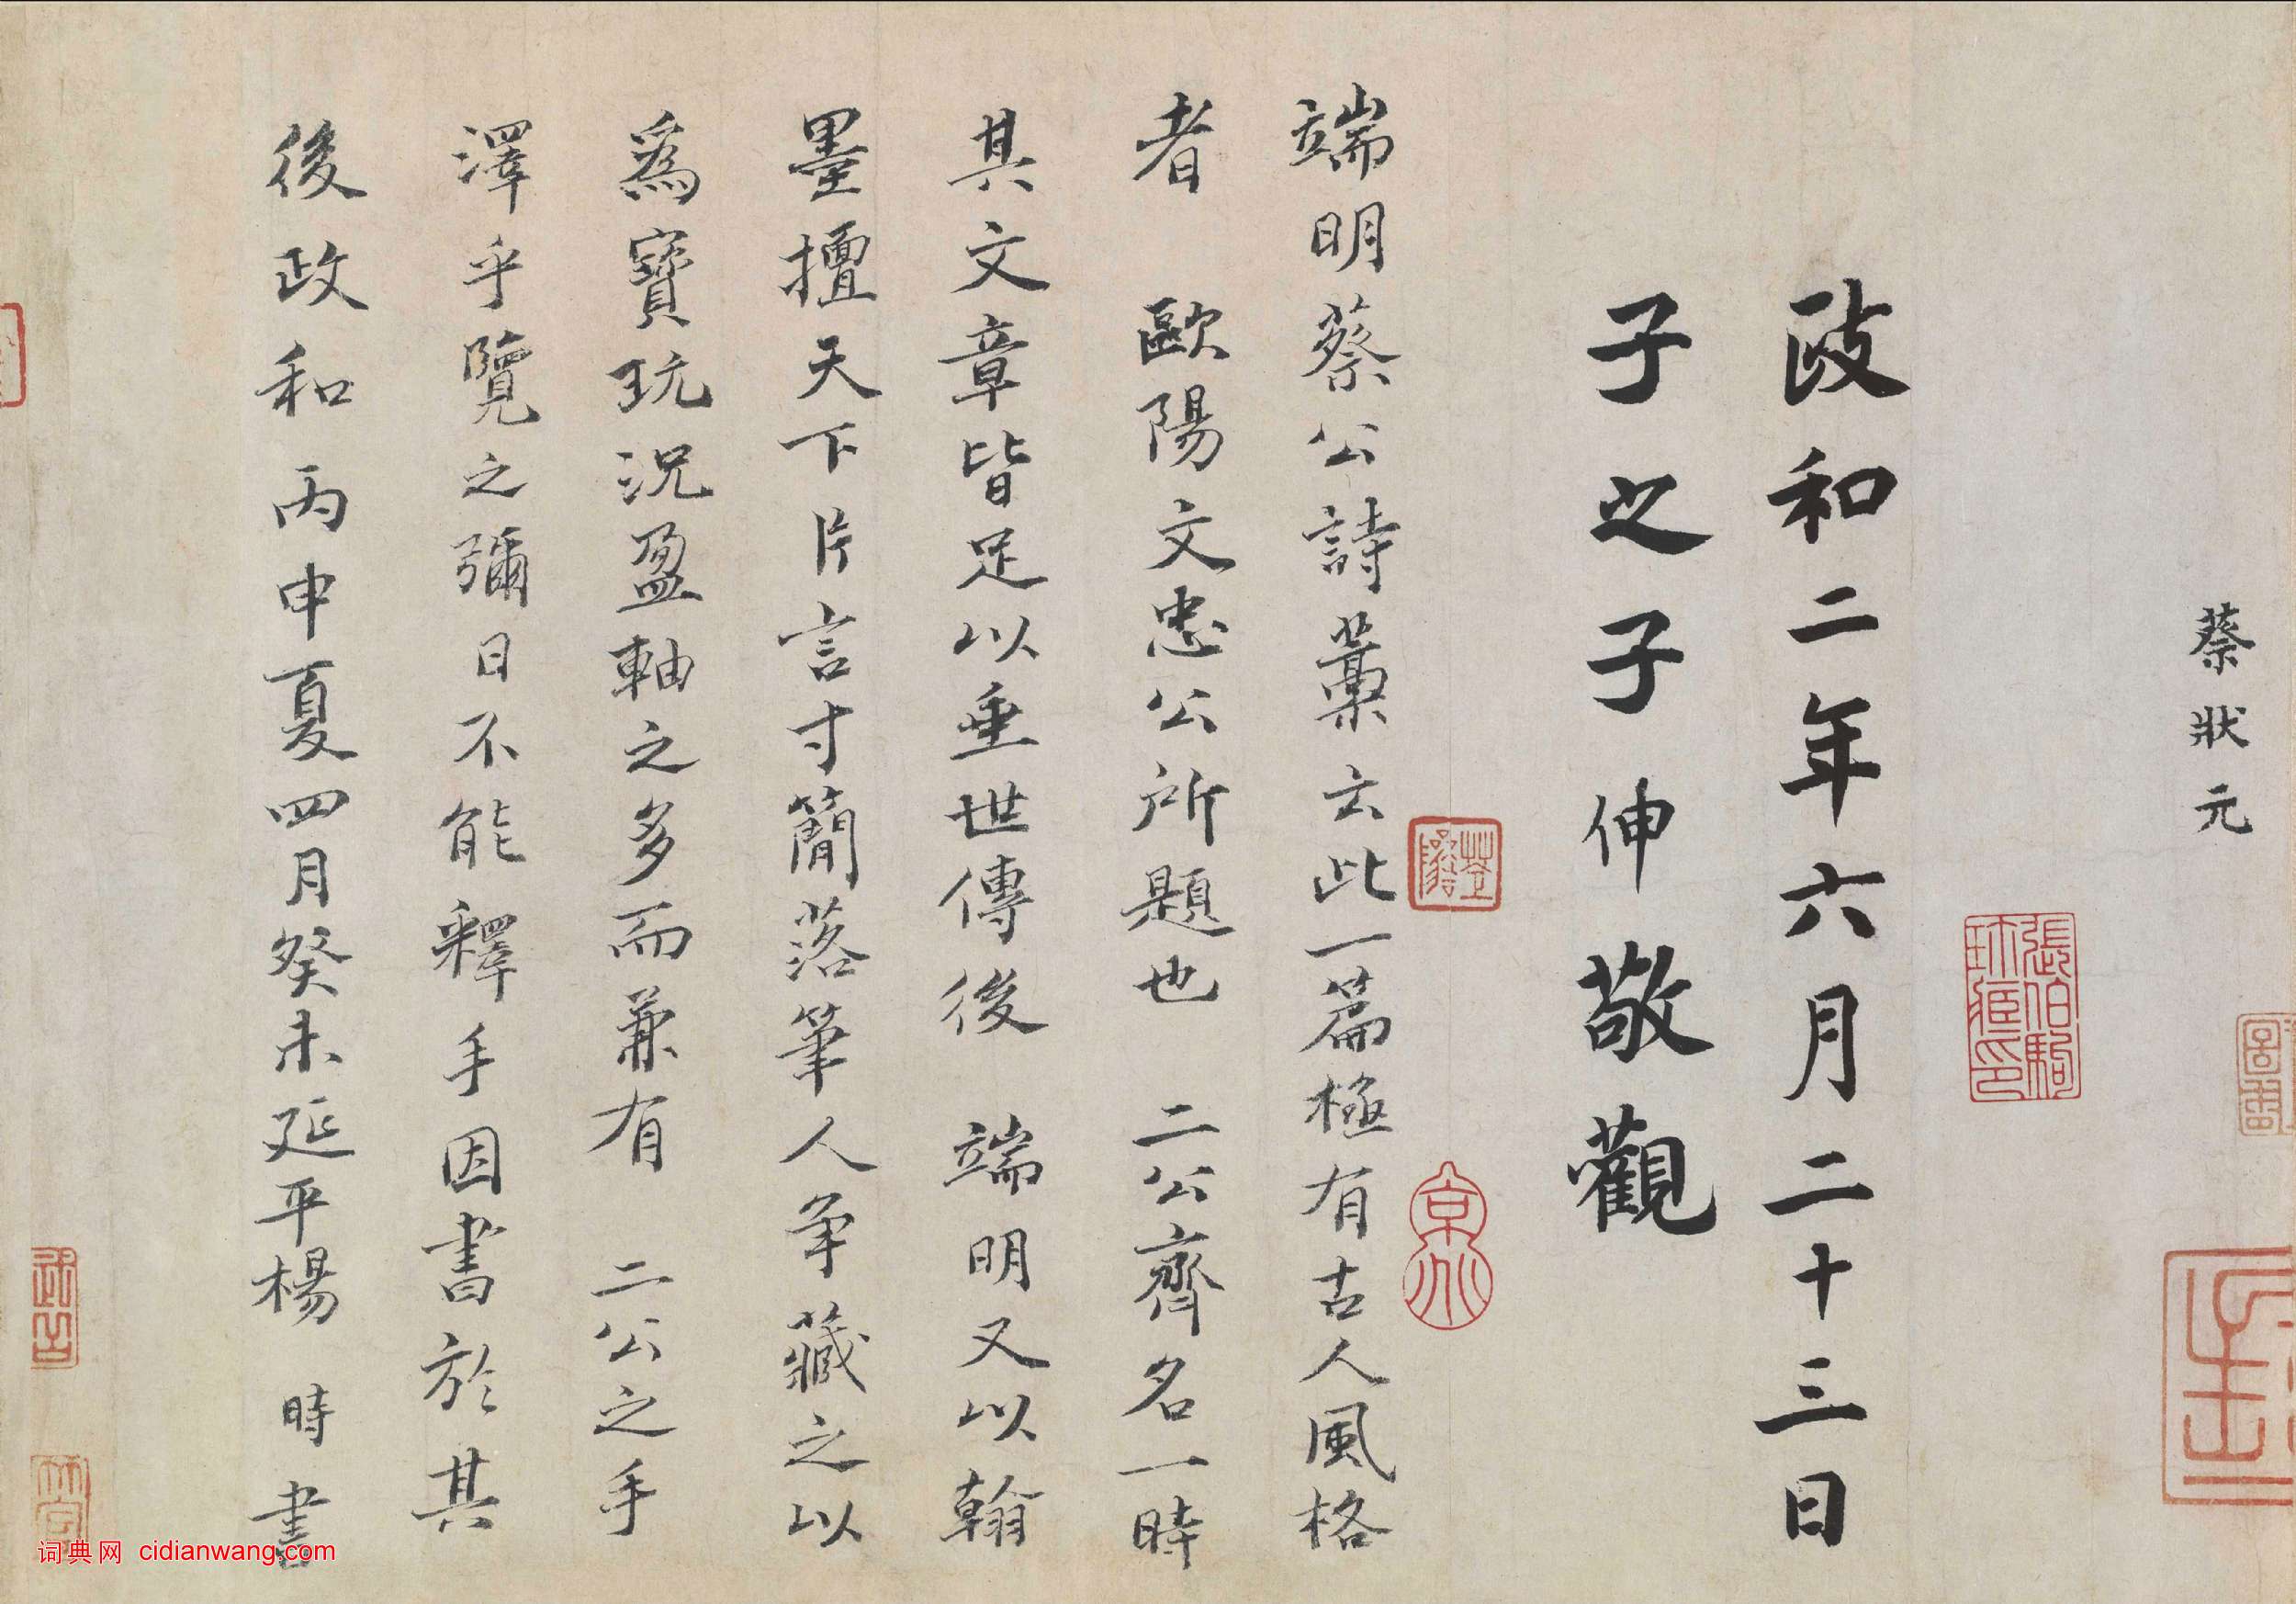 蔡狀元
政和二年六月二十三日
子之子伸敬觀
端明蔡公詩藁云此一篇極有古人風格
者 歐陽文忠公所題也 二公齊名一時
其文章皆足以垂世傳後 端明又以翰
墨擅天下片言寸簡落筆人爭藏之以
爲寶玩況盈軸之多而兼有 二公之手
澤乎覽之彌日不能釋手因書於其
後政和丙申夏四月癸未延平楊 時書
張伯駒
珍藏印
词典网 cidianwang.com